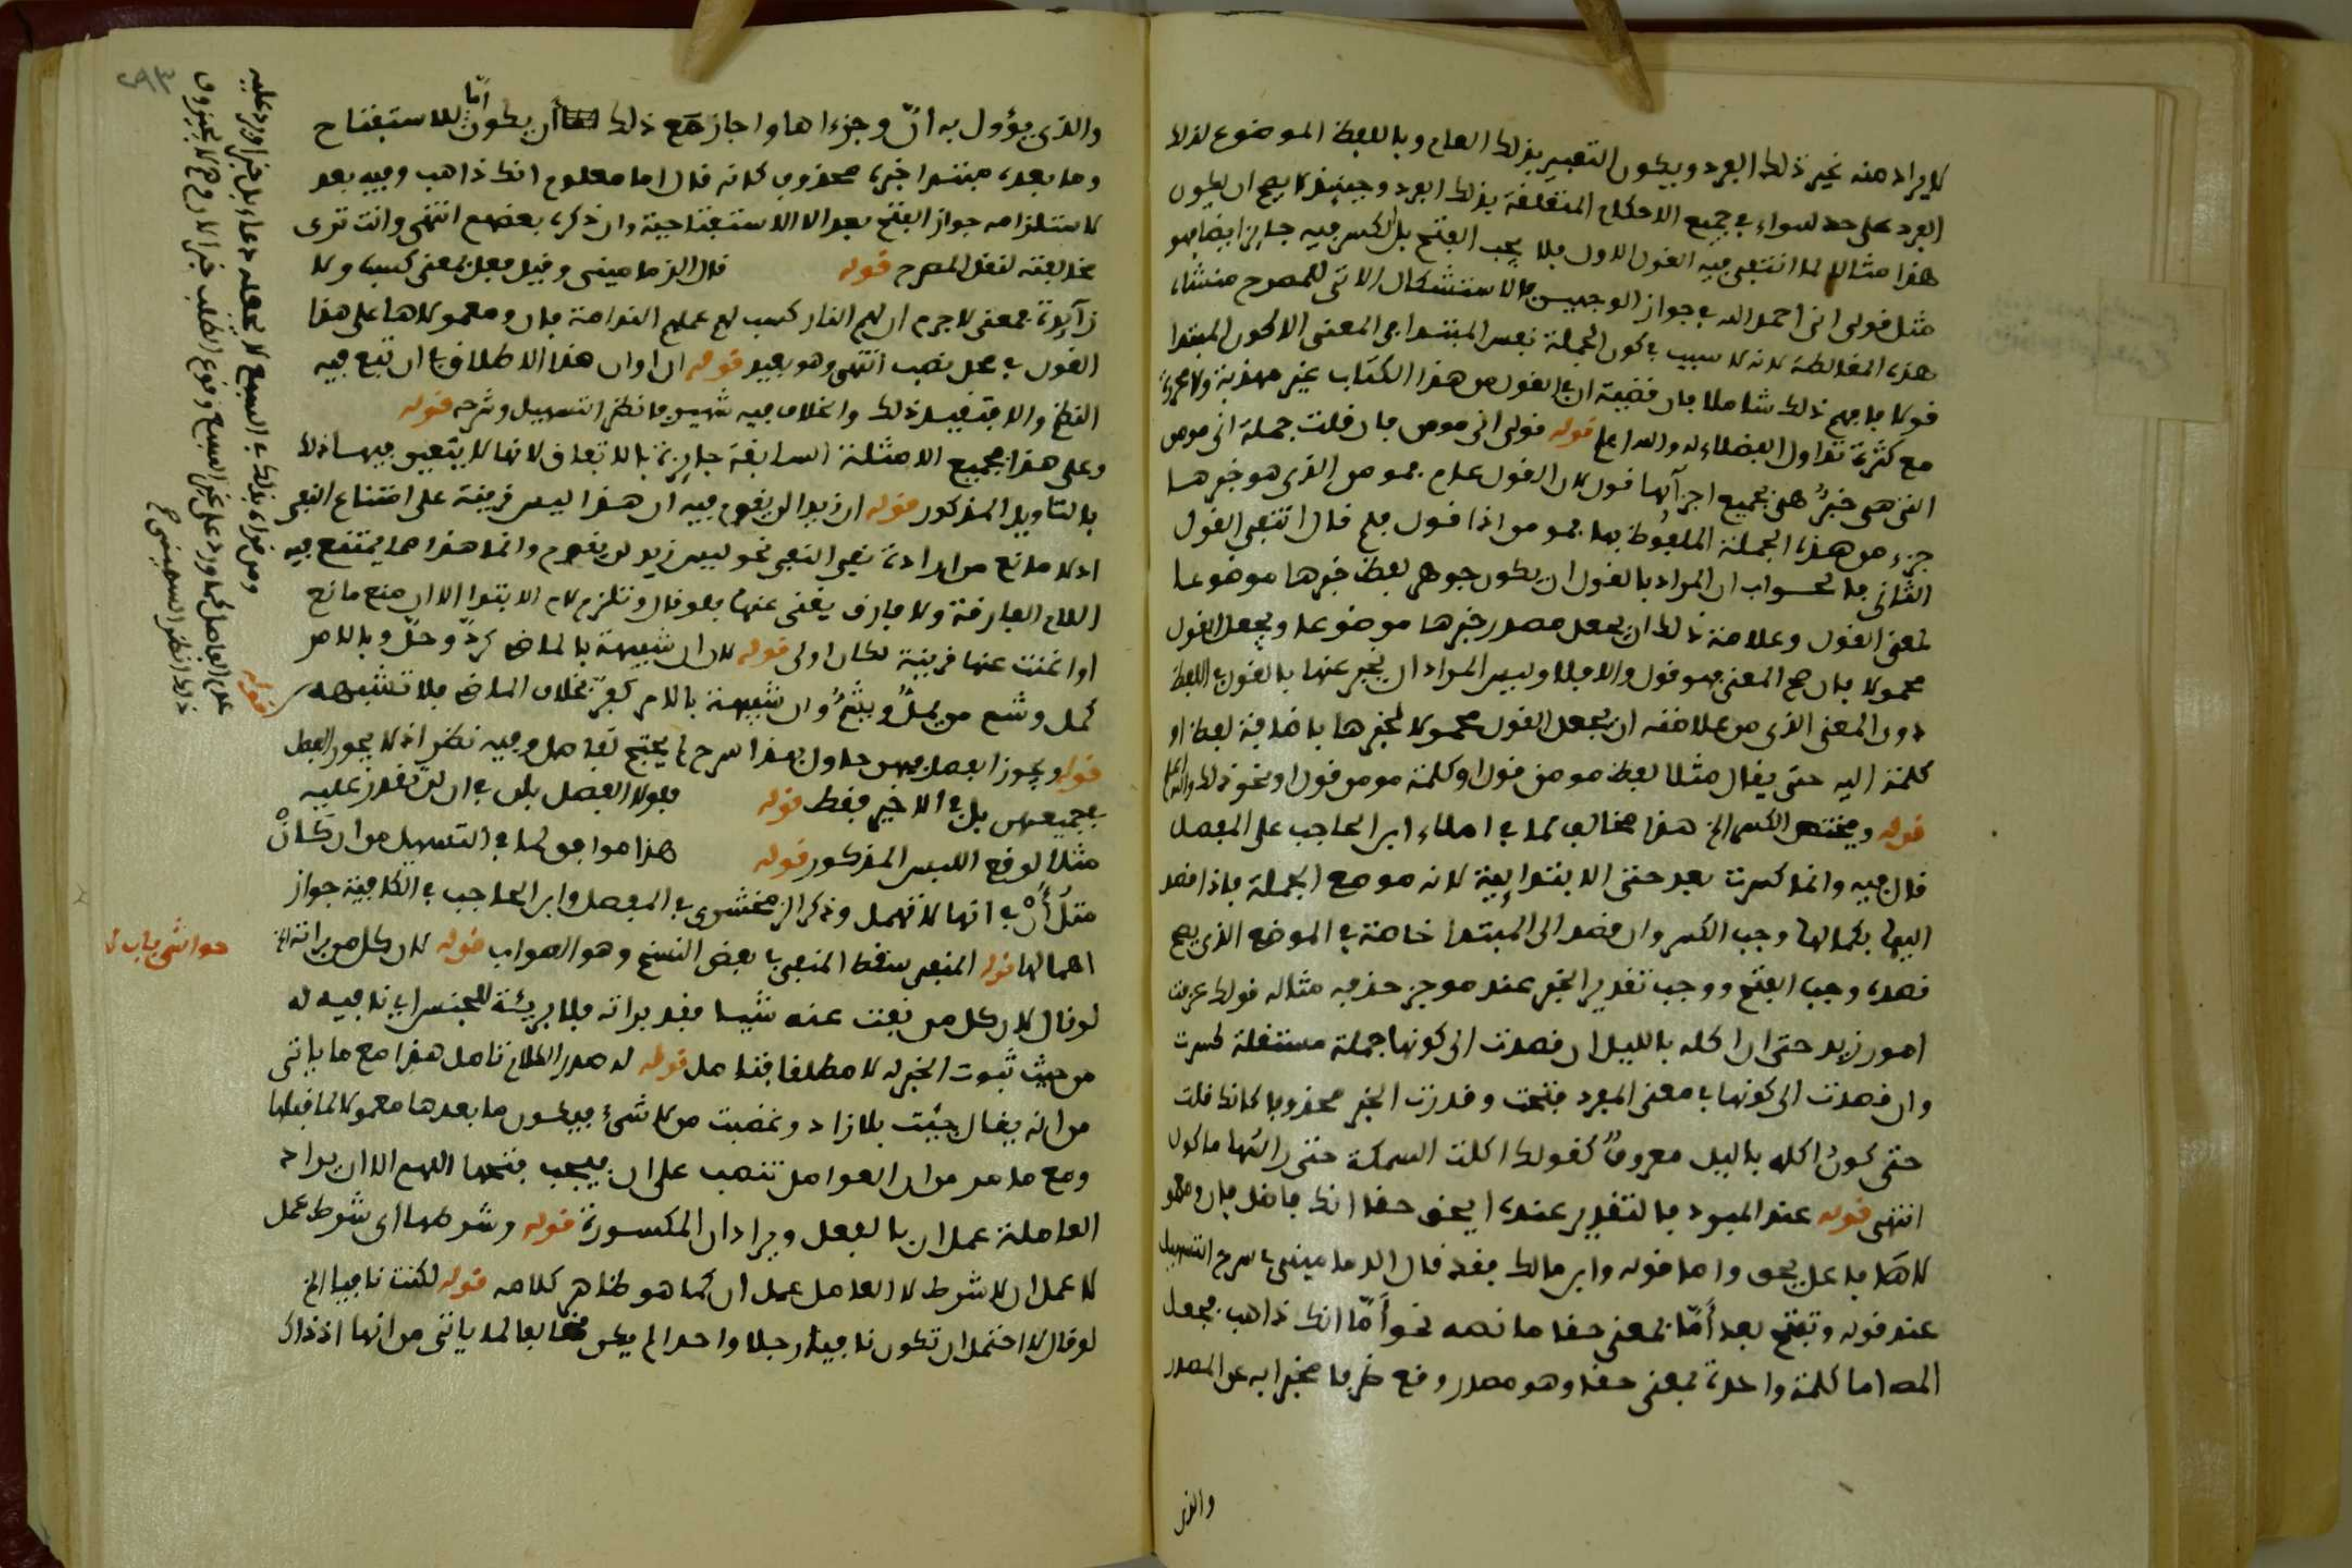 لا يراد منه غير ذلك الفرد ويكون التعبير بذلك العام وباللفظ الموضوع لذلك
الفرد على حد سواء في جميع الاحكام المتعلقة بذلك الفرد وحينئذ لا يصح ان يكون
هذا مثالا لما انتفى فيه القول الاول فلا يجب الفتح بل الكسر فيه جايز ايضا فهو
مثل قولي اني احمد الله في جواز الوجهين فالاستشكال الاتي للمصرح منشاه
هذه المغالطة لانه لا سبب في كون الجملة نفس المبتدا في المعنى الا كون المبتدا
قولا فافهم ذلك شاملا فان قضية ان في القول من هذا الكتاب غير مهذبة ولا محررة
مع كثرة تداول الفضلاء له والله اعلم قوله قولي اني مومن فان قلت جملة اني مومن
التي هي خبر هي بجميع اجزآئها قول لان القول عام مومن الذي هو خبرها
جزء من هذه الجملة الملفوظ بها فمومن اذا قول فلم قال انتفى القول
الثاني فالجواب ان المراد بالقول ان يكون جوهر لفظ خبرها موضوعا
لمعنى القول وعلامة ذلك ان يجعل مصدر خبرها موضوعا ويجعل القول
محمولا فان صح المعنى فهو قول والا فلا وليس المراد ان يخبر عنها بالقول في اللفظ
دون المعنى الذي من علامته ان يجعل القول محمولا لخبرها باضافة لفظ او
كلمة اليه حتى يقال مثلا لفظ مومن قول او كلمة مومن قول او نحو ذلك والله اعلم
قوله ويختص الكسر الخ هذا مخالف لما في املاء ابن الحاجب على المفصل
قال فيه وانما كسرت بعد حتى الابتدايية لانه موضع الجملة فاذا قصد
اليها بكمالها وجب الكسر وان قصد الى المبتدا خاصة في الموضع الذي يصح
قصده وجب الفتح ووجب تقدير الخبر عند موجز حذفه مثاله قولك عرفت
امور زيد حتى ان اكله بالليل ان قصدت الى كونها جملة مستقلة كسرت
وان قصدت الى كونها في معنى المفرد فتحت وقدرت الخبر محذوفا كانك قلت
حتى كون اكله باليل معروف كقولك اكلت السمكة حتى راسها ماكول
انتهى قوله عند المبرد فالتقدير عنده ايحق حقا انك فاضل فان ومعمو
لاها فاعل يحق واما قوله وابن مالك فقد قال الدماميني في شرح التسهيل
عند قوله وتفتح بعد أمّا بمعنى حقا ما نصه نحو أمّا انك ذاهب فجعل
المص اما كلمة واحدة بمعنى حقا وهو مصدر وقع ظرفا مخبرا به عن المصدر
والذي
٢٩٣
والذي يؤول به انّ وجزءاها واجاز مع ذلك ان يكون أمّا للاستفتاح
وما بعده مبتدا خبره محذوف كانه قال اما معلوم انك ذاهب وفيه بعد
لاستلزامه جواز الفتح بعد الا الاستفتاحية وان ذكره بعضهم انتهى وانت ترى
مخالفته لنقل المصرح قوله قال الدماميني وقيل فعل بمعنى كسب ولا
زآيدة فمعنى لا جرم ان لهم النار كسب لهم عملهم الندامة فان ومعمولاها على هذا
القول في محل نصب انتهى وهو بعيد قوله ان اوان هذا الاطلاق في ان تقع فيه
الفتح والا فتقييد ذلك والخلاف فيه شهير فانظر التسهيل وشرحه قوله
وعلى هذا فجميع الامثلة السابقة جايزة بالاتفاق لانها لا يتعين فيها ذلك
بالتاويل المذكور قوله ان زيدا لن يقوم فيه ان هذا ليس قرينة على امتناع النفي
اذ لا مانع من ارادة نفي النفي نحو ليس زيد لن يقوم وانما هذا مما يمتنع فيه
اللام الفارقة ولا فارق يغني عنها فلو قال وتلزم لام الابتدا الا ان منع مانع
او اغنت عنها قرينة لكان اولى قوله لان ان شبيهة بالماضي كردّ وحلّ وبالامر
كمل وشع من يملّ ويشعّ وان شبيهة بالامر كفرّ بخلاف الماضي فلا تشبهه
قوله ويجوز الفصل فيهن حاول بهذا شرح لم يحتج لفاصل وفيه نظر اذ لا يجوز الفصل
في جميعهن بل في الاخير فقط قوله فلولا الفصل بلن في ان لن نقدر عليه
مثلا لوقع اللبس المذكور قوله هذا موافق لما في التسهيل من ان كأنْ
مثل أنْ في انها لا تهمل وذكر الزمخشري في المفصل وابن الحاجب في الكافية جواز
اهمالها قوله المنفي سقط المنفي في بعض النسخ وهو الصواب قوله لان كل من براته الخ
لو قال لان كل من نفيت عنه شيا فقد براته فلا برئة للجنس اي نافية له
من حيث ثبوت الخبر له لا مطلقا فتامل قوله له صدر الكلام تامل هذا مع ما ياتي
من انه يقال جيت بلا زاد وغضبت من لا شيء فيكون ما بعدها معمولا لما قبلها
ومع ما مر من ان العوامل تنصب على ان فيجب فتحها اللهم الا ان يراد
العاملة عمل ان بالفعل ويراد ان المكسورة قوله وشرطها اي شرط عمل
لا عمل ان لا شرط لا العامل عمل ان كما هو ظاهر كلامه قوله لكنت نافيا الخ
لو قال لا احتمل ان تكون نافية رجلا واحدا لم يكن مخالفا لما ياتي من انها اذ ذاك
حواشي باب لا